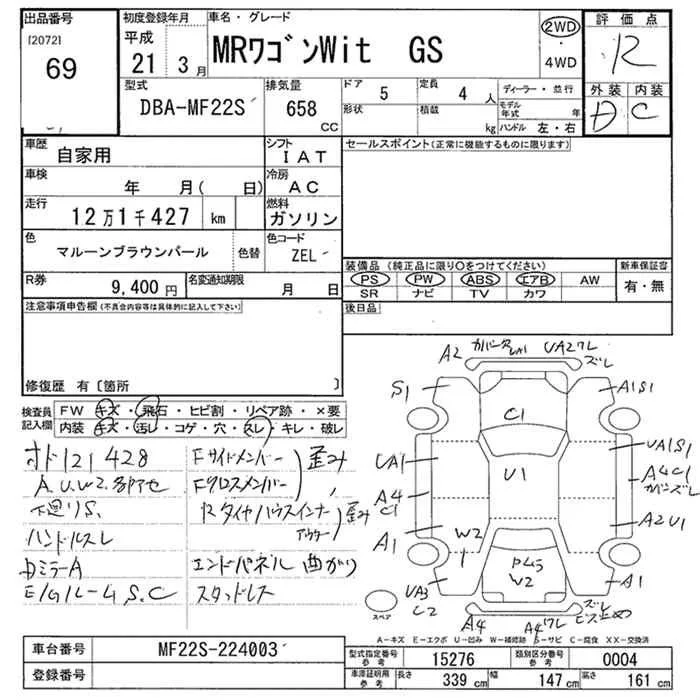 出品番号 初度登録年月 車名・グレード 2WD 評価点
[2072] 平成 MRワゴンWit GS ・ R
69 21年 3月 4WD 外装 内装
D C
型式 排気量 ドア 5 定員 4人 ディーラー・並行
DBA-MF22S 658 CC 形状 積載 kg モデル年式 年
ハンドル 左・右
車歴 自家用 シフト IAT セールスポイント(正常に機能するものに限ります)
車検 年 月( 日) 冷房 AC
走行 12万1千427 km 燃料 ガソリン
色 マルーンブラウンパール 色替 色コード ZEL
装備品 (純正品に限り○をつけてください) 新車保証書
R券 9,400円 名変通知期限 月 日 PS PW ABS エアB AW 有・無
SR ナビ TV カワ
注意事項申告欄(不具合内容等は具体的に記入して下さい) 後日品
修復歴 有〔箇所 〕
検査員記入欄 FW キズ・飛石・ヒビ割・リペア跡・×要
内装 キズ・汚レ・コゲ・穴・スレ・キレ・破レ
オド121428 Fサイドメンバー 歪み
A.U.W2.多アセ Fクロスメンバー
下廻りS. Rタイヤハウスインナー 歪み
アウター
ハンドルスレ
DミラーA エンドパネル 曲がり
E/Gルーム S.C スタッドレス
A2 UA2ワレ
ズレ
S1 A1S1
C1
UA1 U1 UA1S1
A4C1
A4
C1 A2U1
A1 W2
W2 A1
UA3
C2 ズレ
スペア A4 A4ワレ
A-キズ E-エクボ U-凹み W-補修跡 S-サビ C-腐食 XX-交換済
車台番号 MF22S-224003 型式指定番号 参考 15276 類別区分番号 参考 0004
登録番号 車検証明用 参考 長さ 339cm 幅 147cm 高さ 161cm